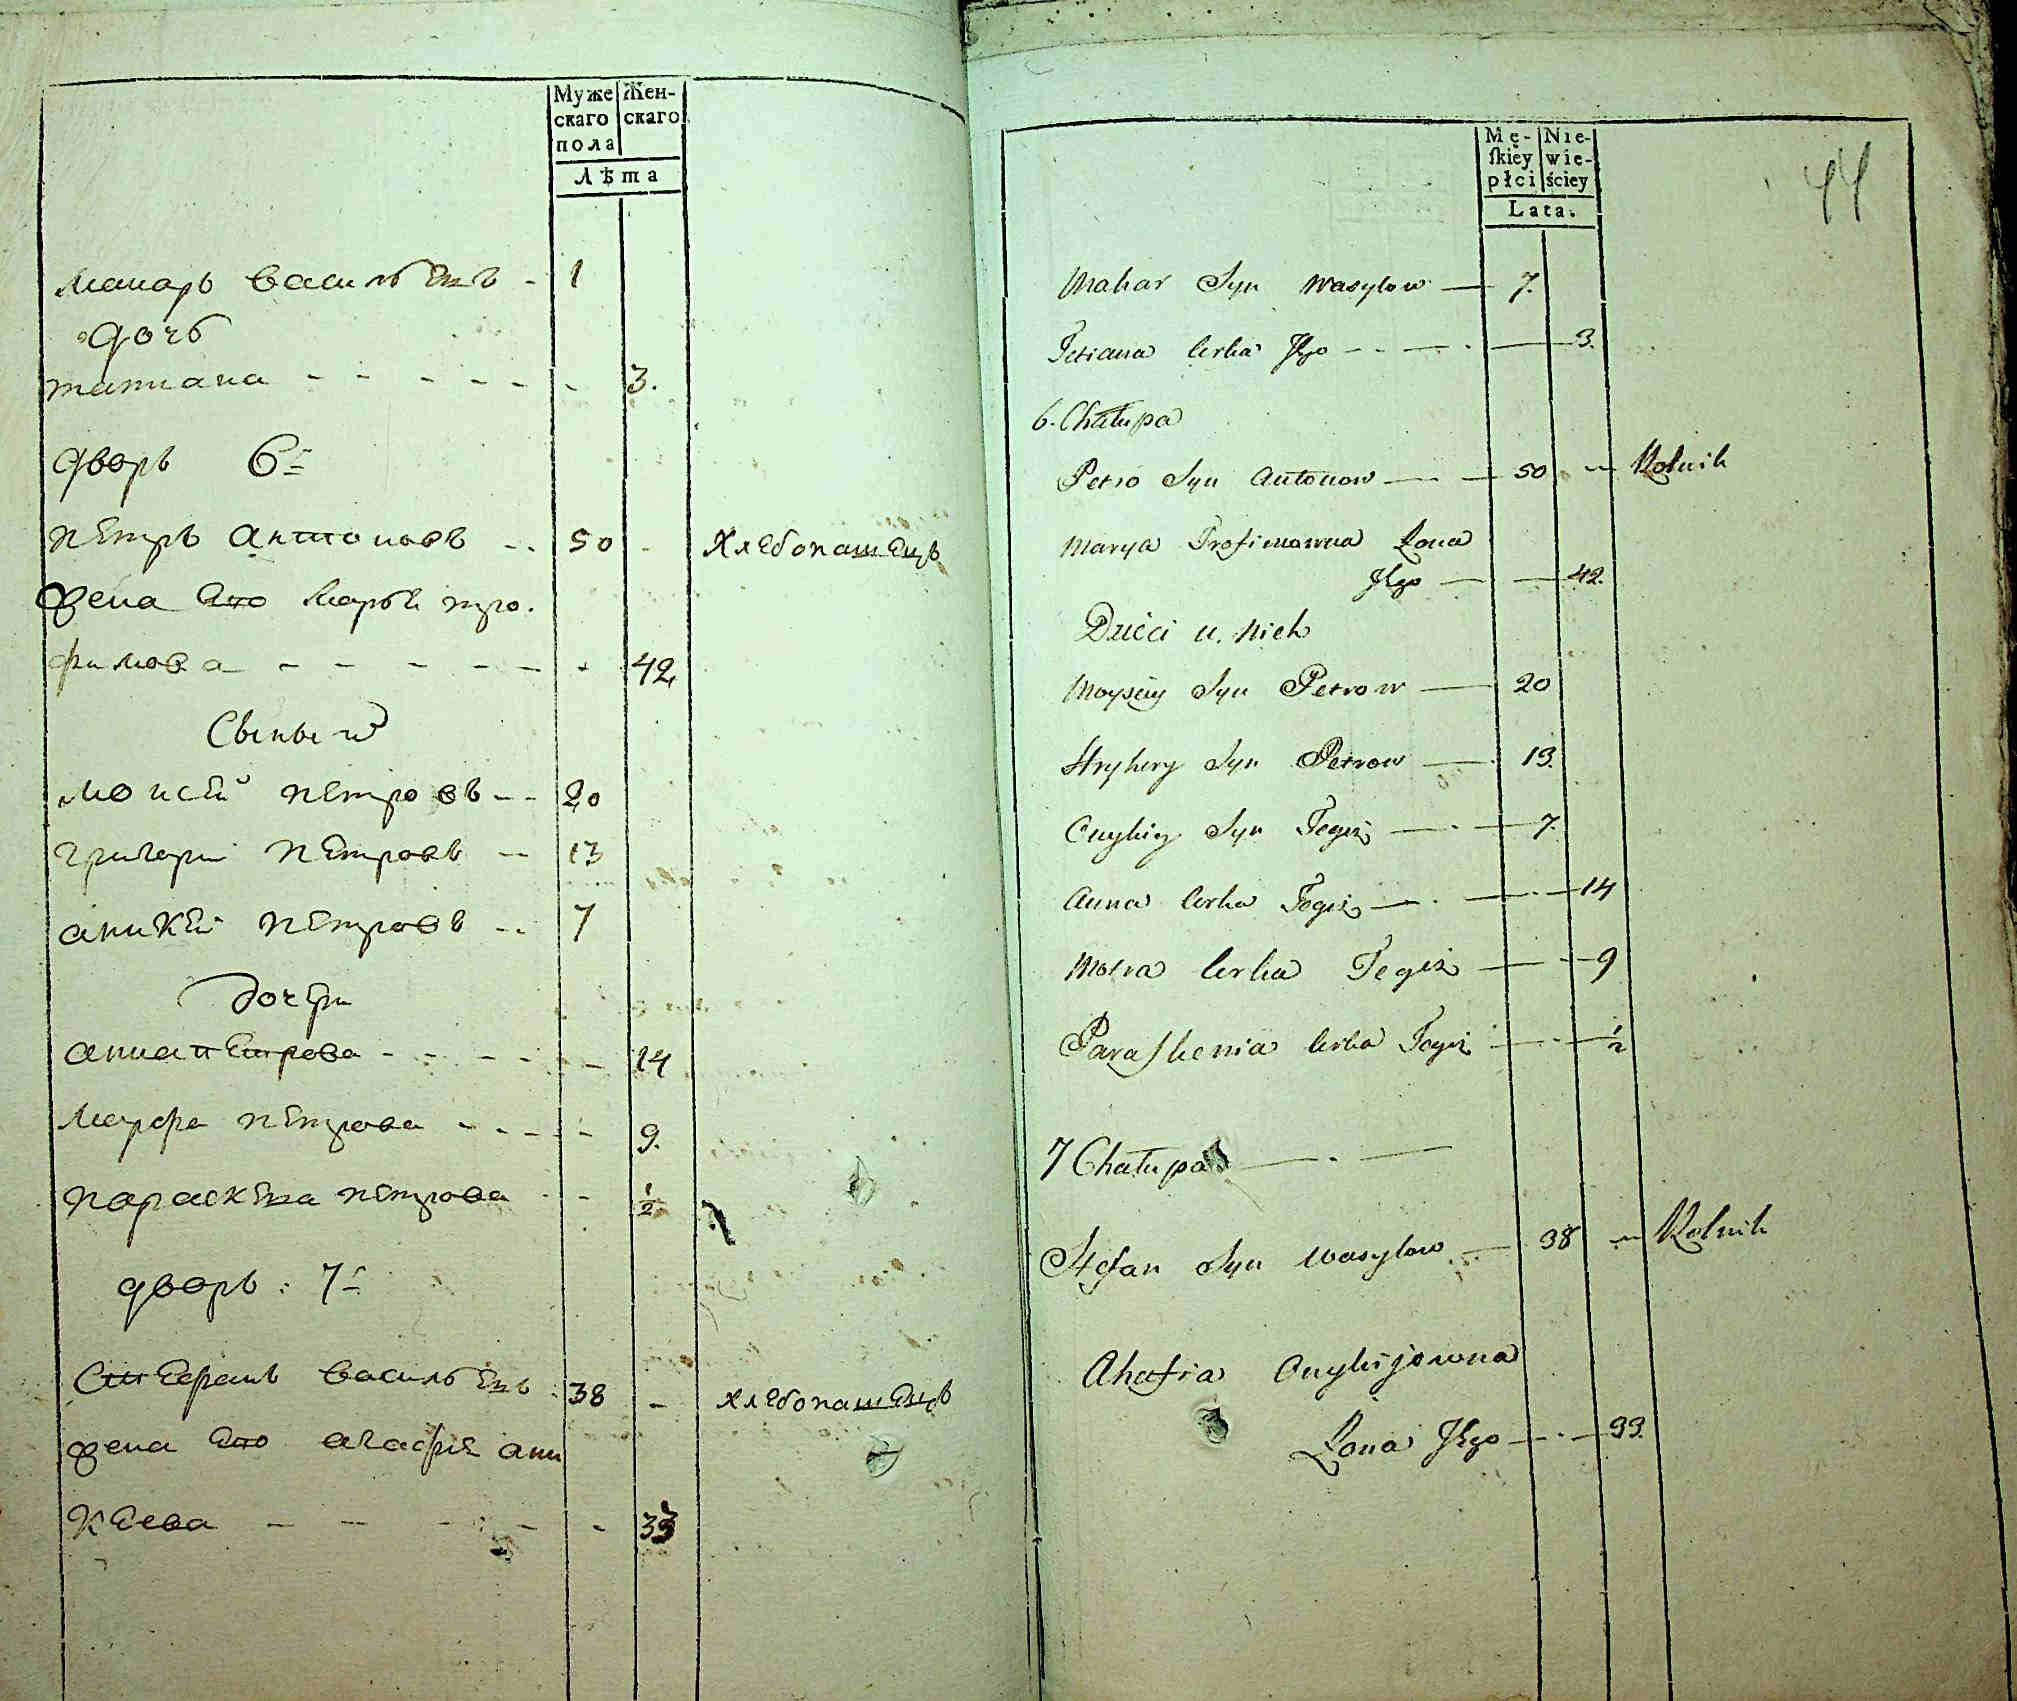 Муже Жен-
скаго скаго
пола
Лѣта
Макаръ Васильевъ - 1
дочь
татиана - - - - - - 3.
дворъ 6й
петръ антоновъ - - 50 - хлебопашецъ
жена Его Марья тро-
фимова - - - - - - 42
Сыновья
моисей петровъ - - 20
григори петровъ - - 13
аникей петровъ - - 7
дочери
анна петрова - - - - - 14
Марфа петрова - - - - - 9.
параскева петрова - - 1/2
дворъ: 7й
Стефанъ васильевъ 38 - хлебопашецъ
жена Его агафия ани
кеева - - - - - - 33
44
Mę- Nie-
ſkiey wie-
płci ściey
Lata.
Makar Syn Wasylow — 7.
Tetiana Corka Jego - - — . — 3.
6. Chałupa
Petro Syn Antonow — — 50 — Rolnik
Marya Trofimowna Zona
Jego — — 42.
Dzieci u. nich
Moysiey Syn Petrow — 20
Hryhory Syn Petrow — 13.
Onykiy Syn Tegoż — . — 7.
Anna Corka Tegoż — . — . — 14
Motra Corka Tegoż — — 9
Paraſkewia Corka Tegoż — . — 1/2
7 Chałupa — . —
Stefan Syn Wasylow — 38 — Rolnik
Ahafia Onykijowna
Zona Jego — . — 33.